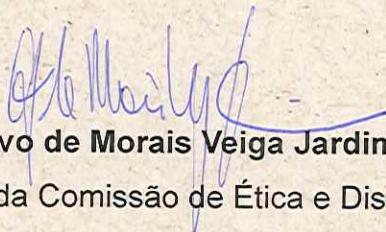 vo de Morais Veiga Jardim
da Comissão de Ética e Dis